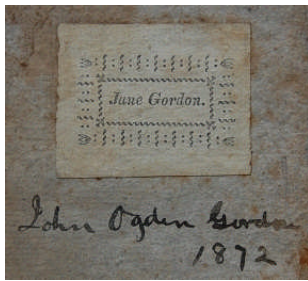 Jane Gordon.
John Ogden Gordon
1872